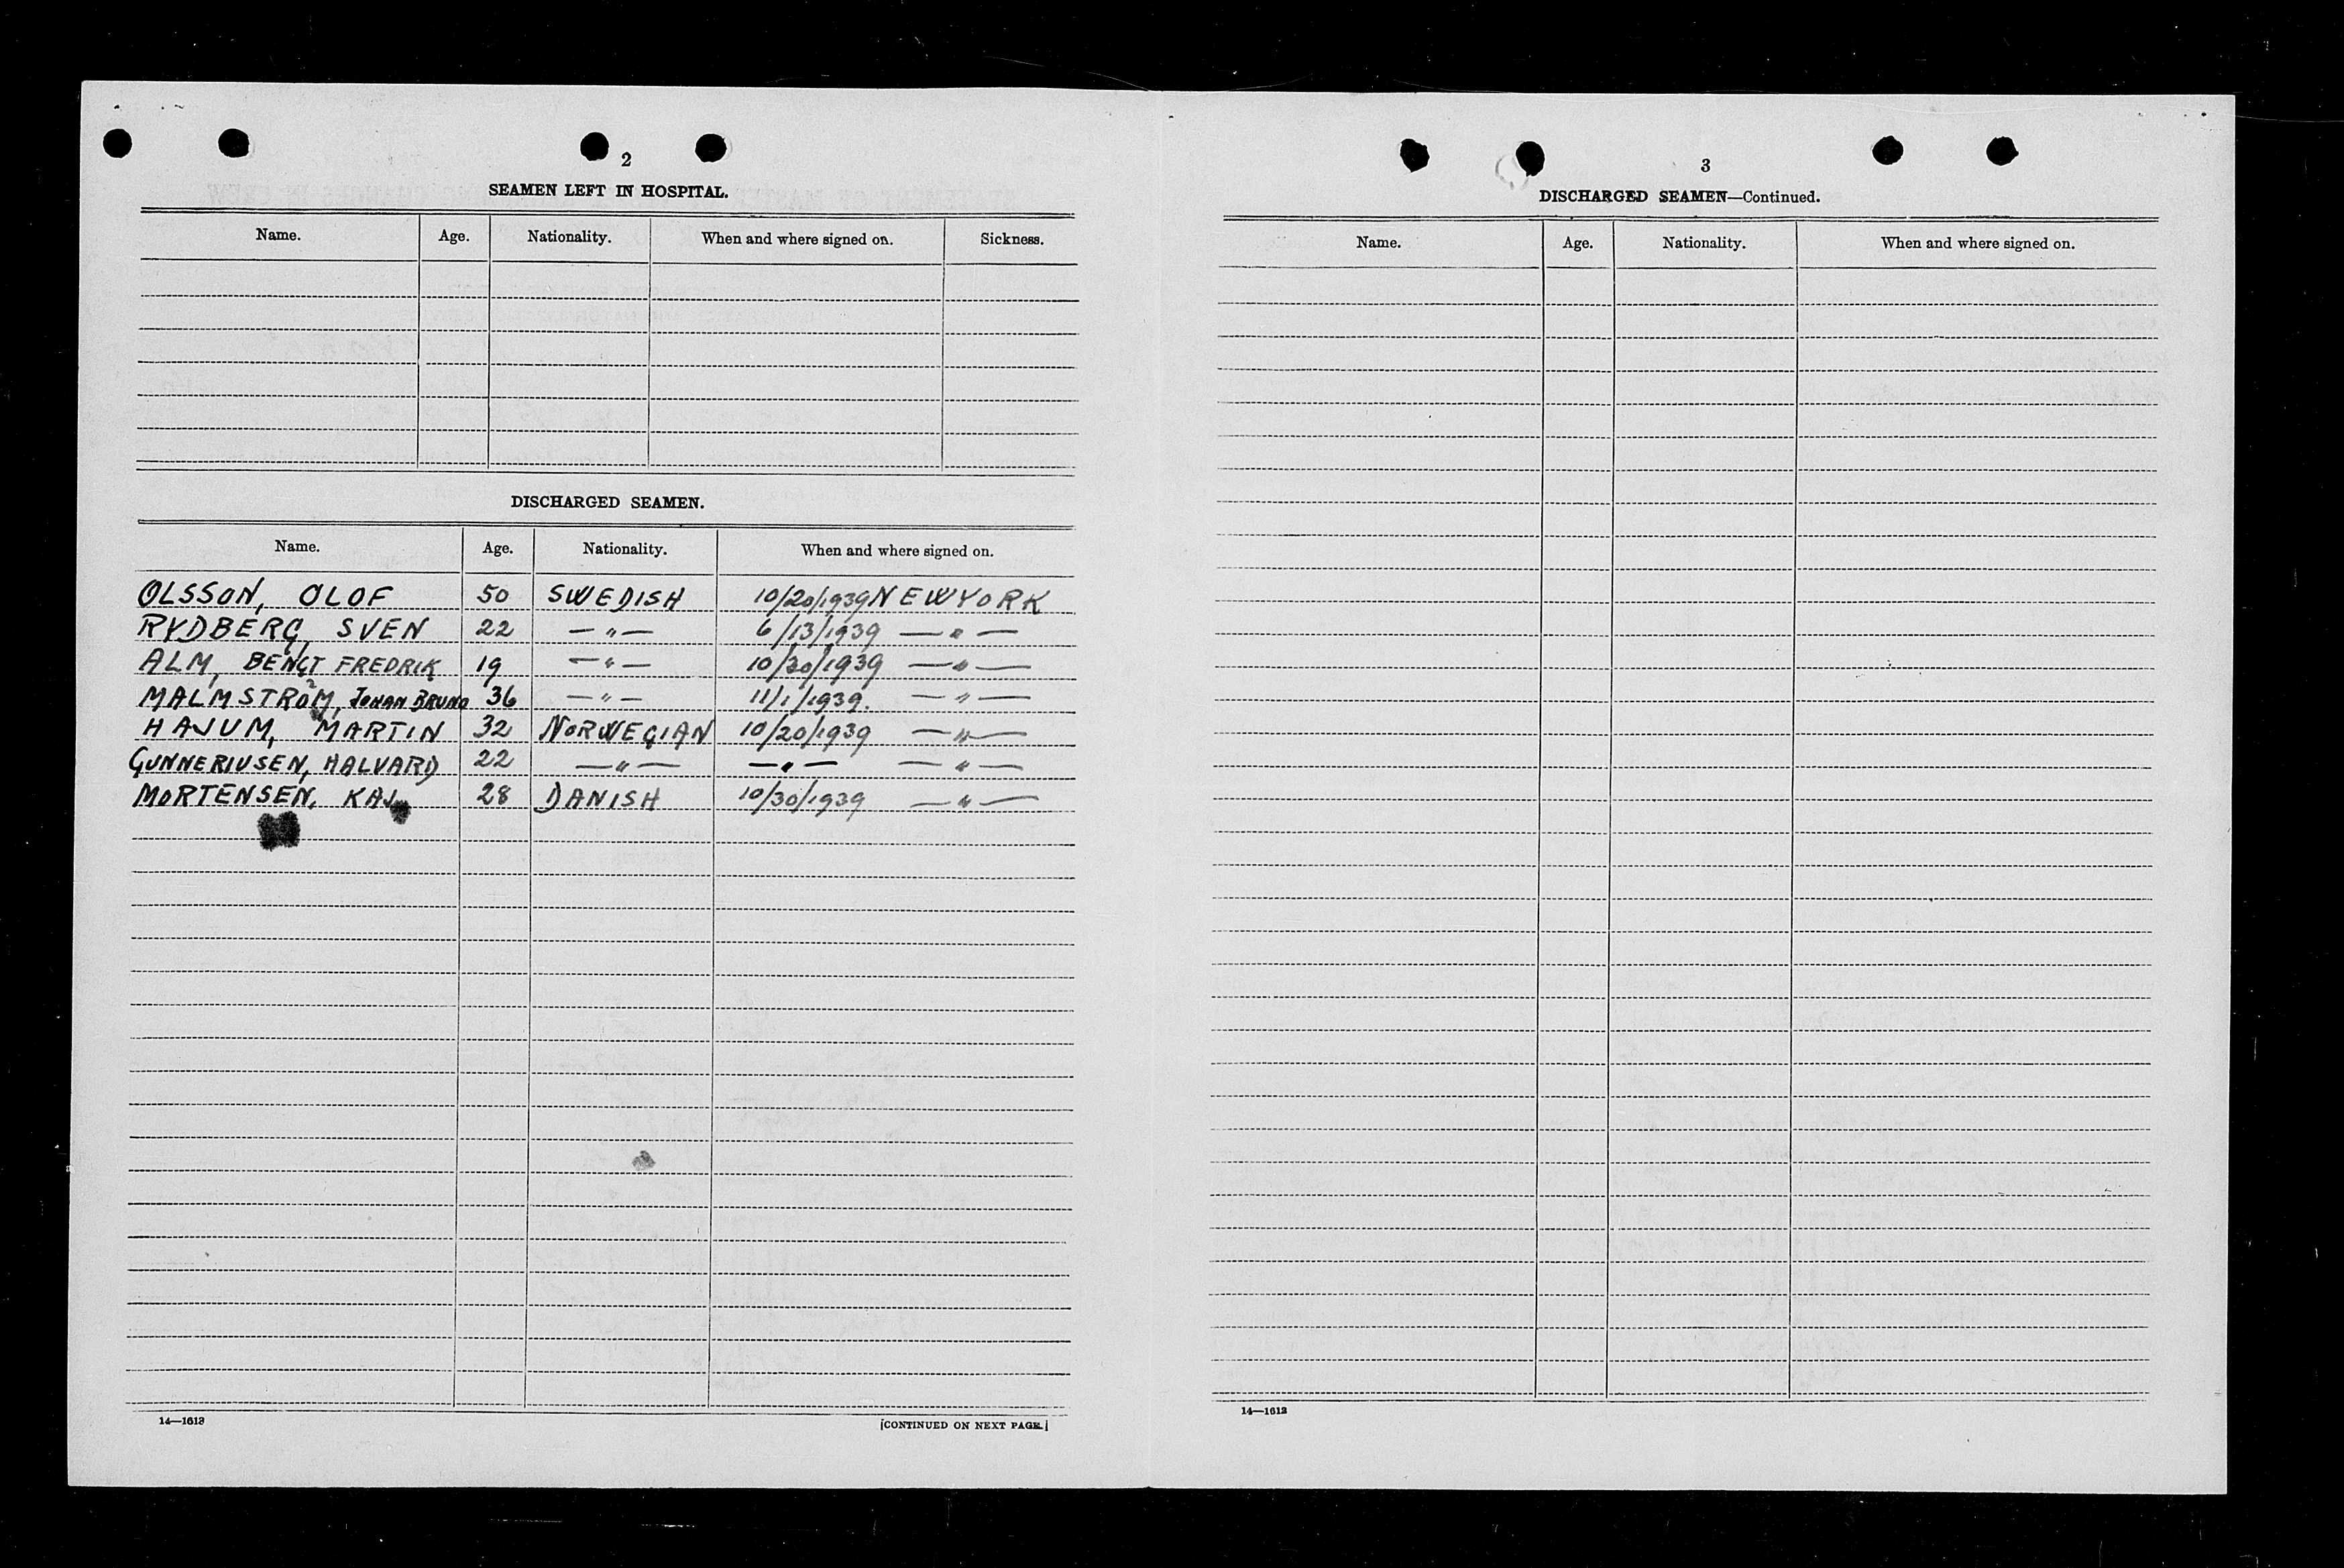 2
SEAMEN LEFT IN HOSPITAL.
Name. Age. Nationality. When and where signed on. Sickness.
DISCHARGED SEAMEN.
Name. Age. Nationality. When and where signed on.
OLSSON, OLOF 50 SWEDISH 10/20/1939 NEW YORK
RYDBERG, SVEN 22 —"— 6/13/1939 —"—
ALM, BENGT FREDRIK 19 —"— 10/20/1939 —"—
MALMSTROM, JOHAN BRUNO 36 —"— 11/1/1939. —"—
HAJUM, MARTIN 32 NORWEGIAN 10/20/1939 —"—
GUNNERIUSEN, HALVARD 22 —"— —"— —"—
MORTENSEN, KAJ 28 DANISH 10/30/1939 —"—
14—1613
[CONTINUED ON NEXT PAGE.]
3
DISCHARGED SEAMEN—Continued.
Name. Age. Nationality. When and where signed on.
14—1613